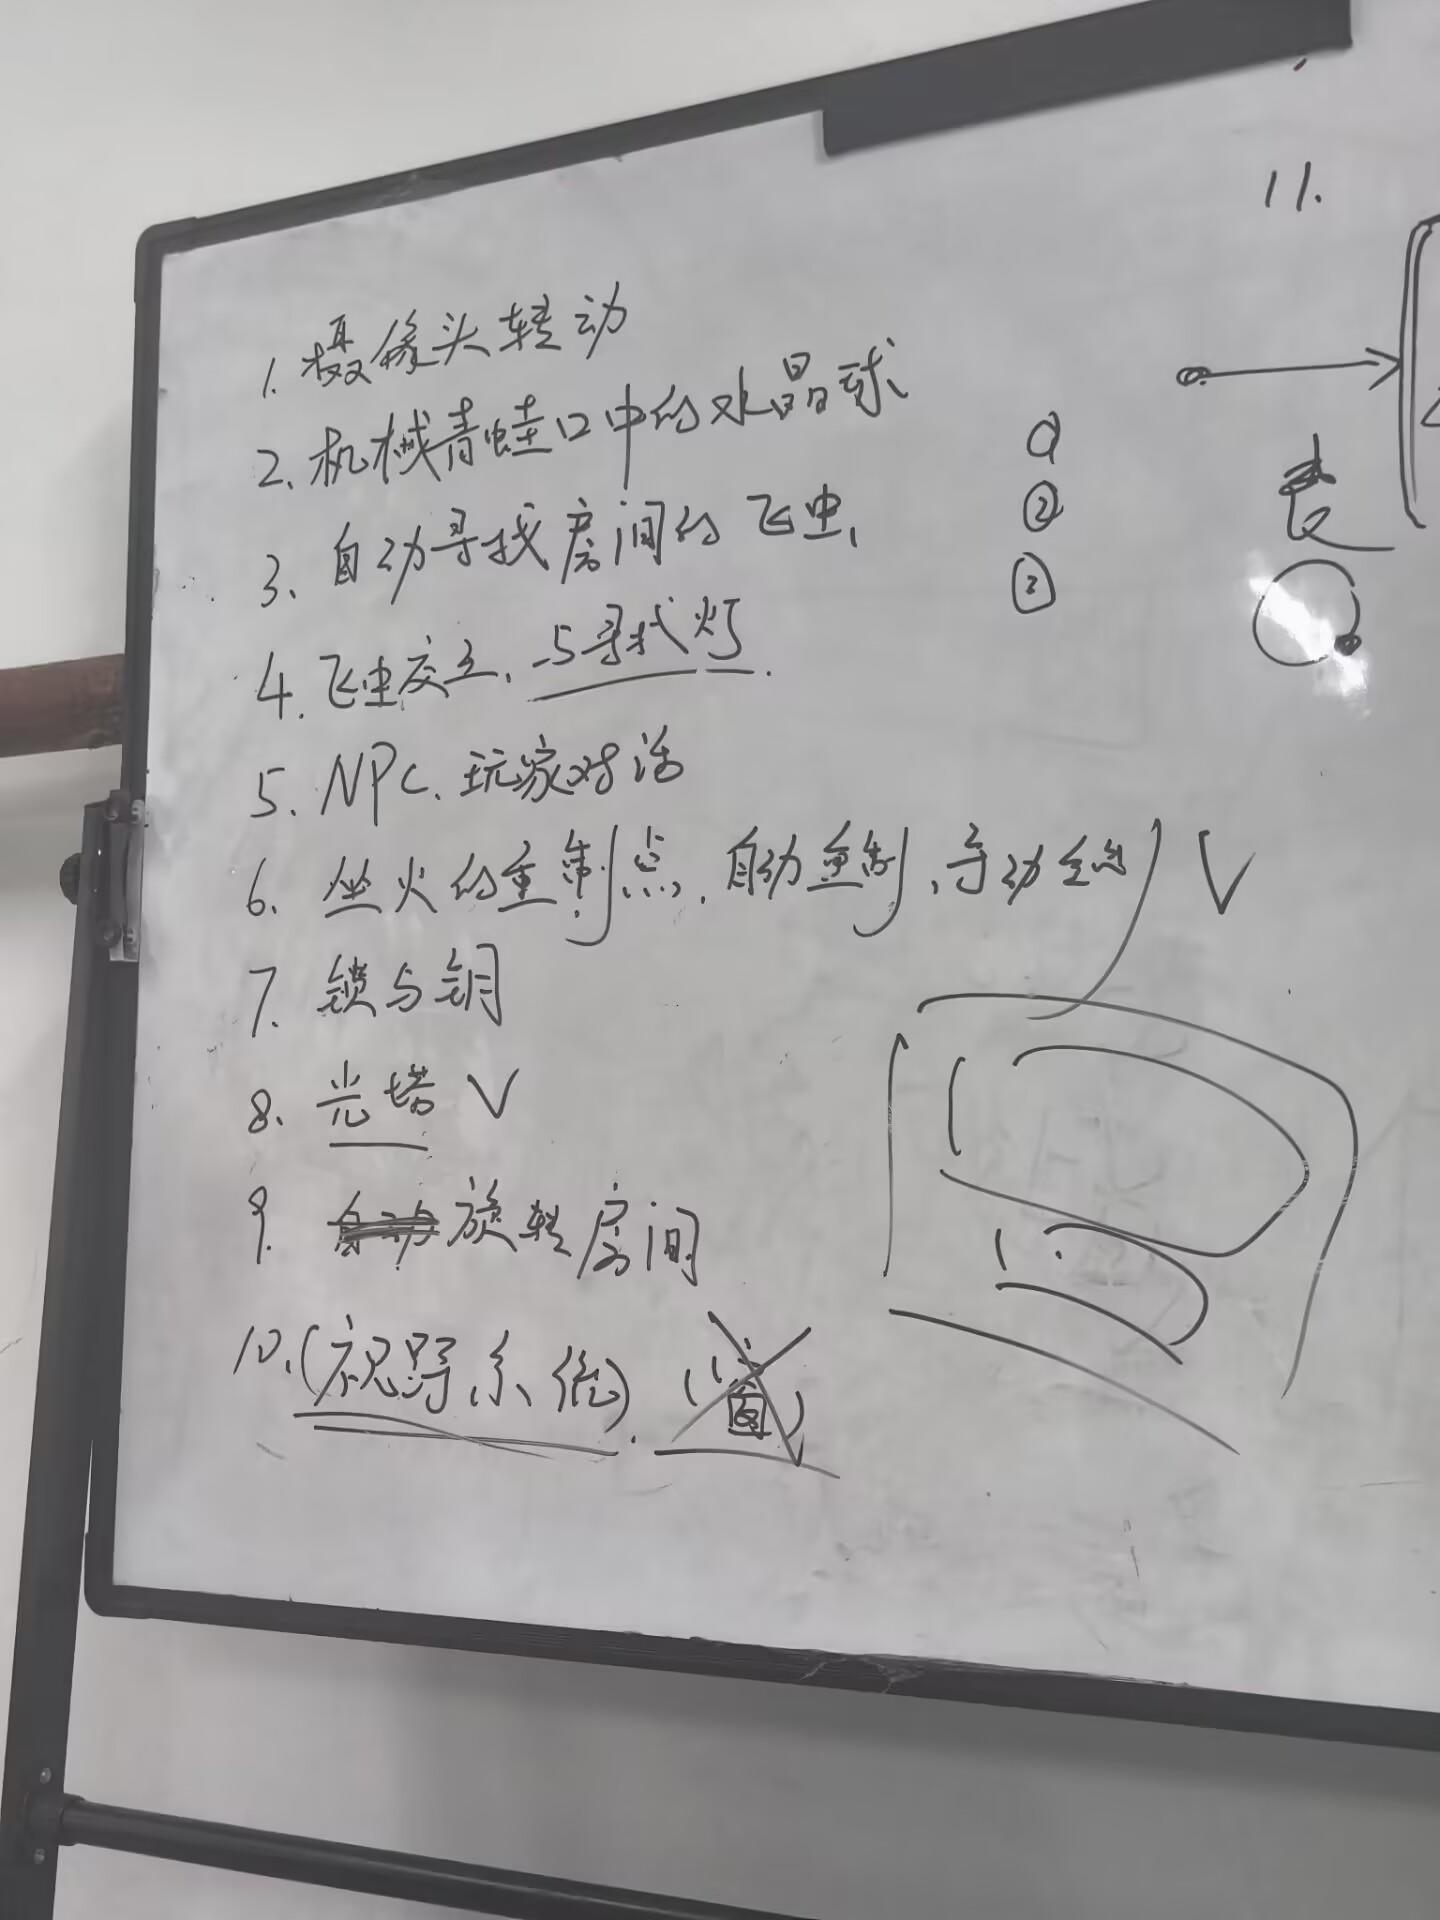 1. 摄像头转动
2. 机械青蛙口中的水晶球
3. 自动寻找房间的飞虫
4. 飞虫交互、与寻找灯.
5. NPC、玩家对话
6. 火的重制点. 自动重制、手动 V
7. 锁与钥
8. 光塔 V
9. 自动 旋转房间
10. (视野系统). (窗)
11.
①
②
③